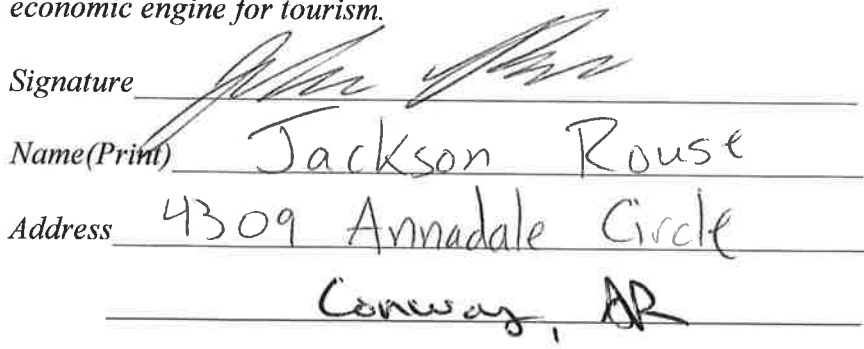 economic engine for tourism.
Signature
Name(Print) Jackson Rouse
Address 4309 Annadale Circle
Conway, AR